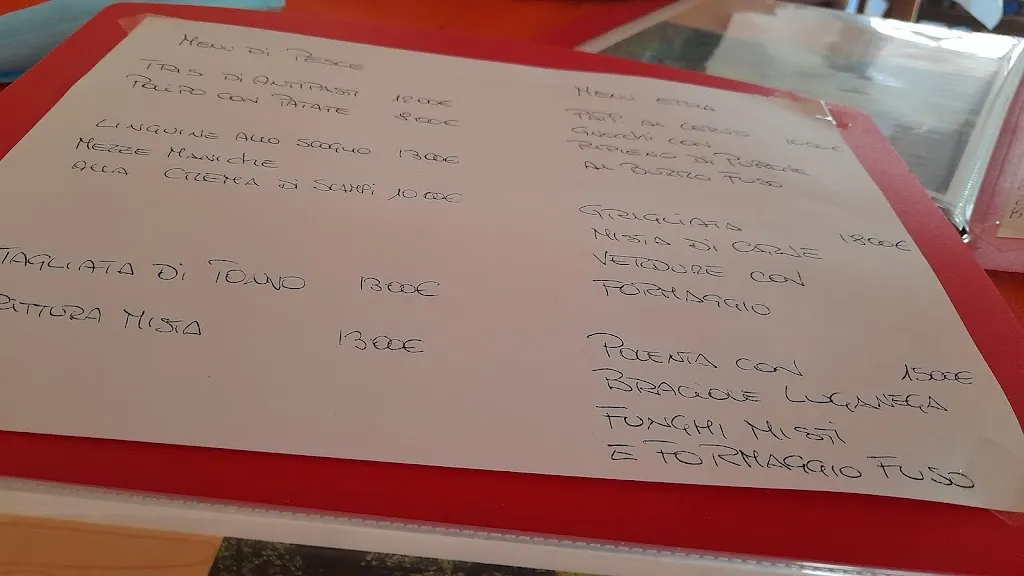 MENU DI PESCE
TRIS DI ANTIPASTI 1200€
POLIPO CON PATATE 800€
LINGUINE ALLO SCOGLIO 1300€
MEZZE MANICHE
ALLA CREMA DI SCAMPI 1000€
TAGLIATA DI TONNO 1300€
FRITTURA MISTA 1300€
MENU
GNOCCHI CON
RIPIENO DI
AL BURRO FUSO
GRIGLIATA 1800€
MISTA DI CARNE
VERDURE CON
FORMAGGIO
POLENTA CON 1500€
BRACIOLE LUGANEGA
FUNGHI MISTI
E FORMAGGIO FUSO